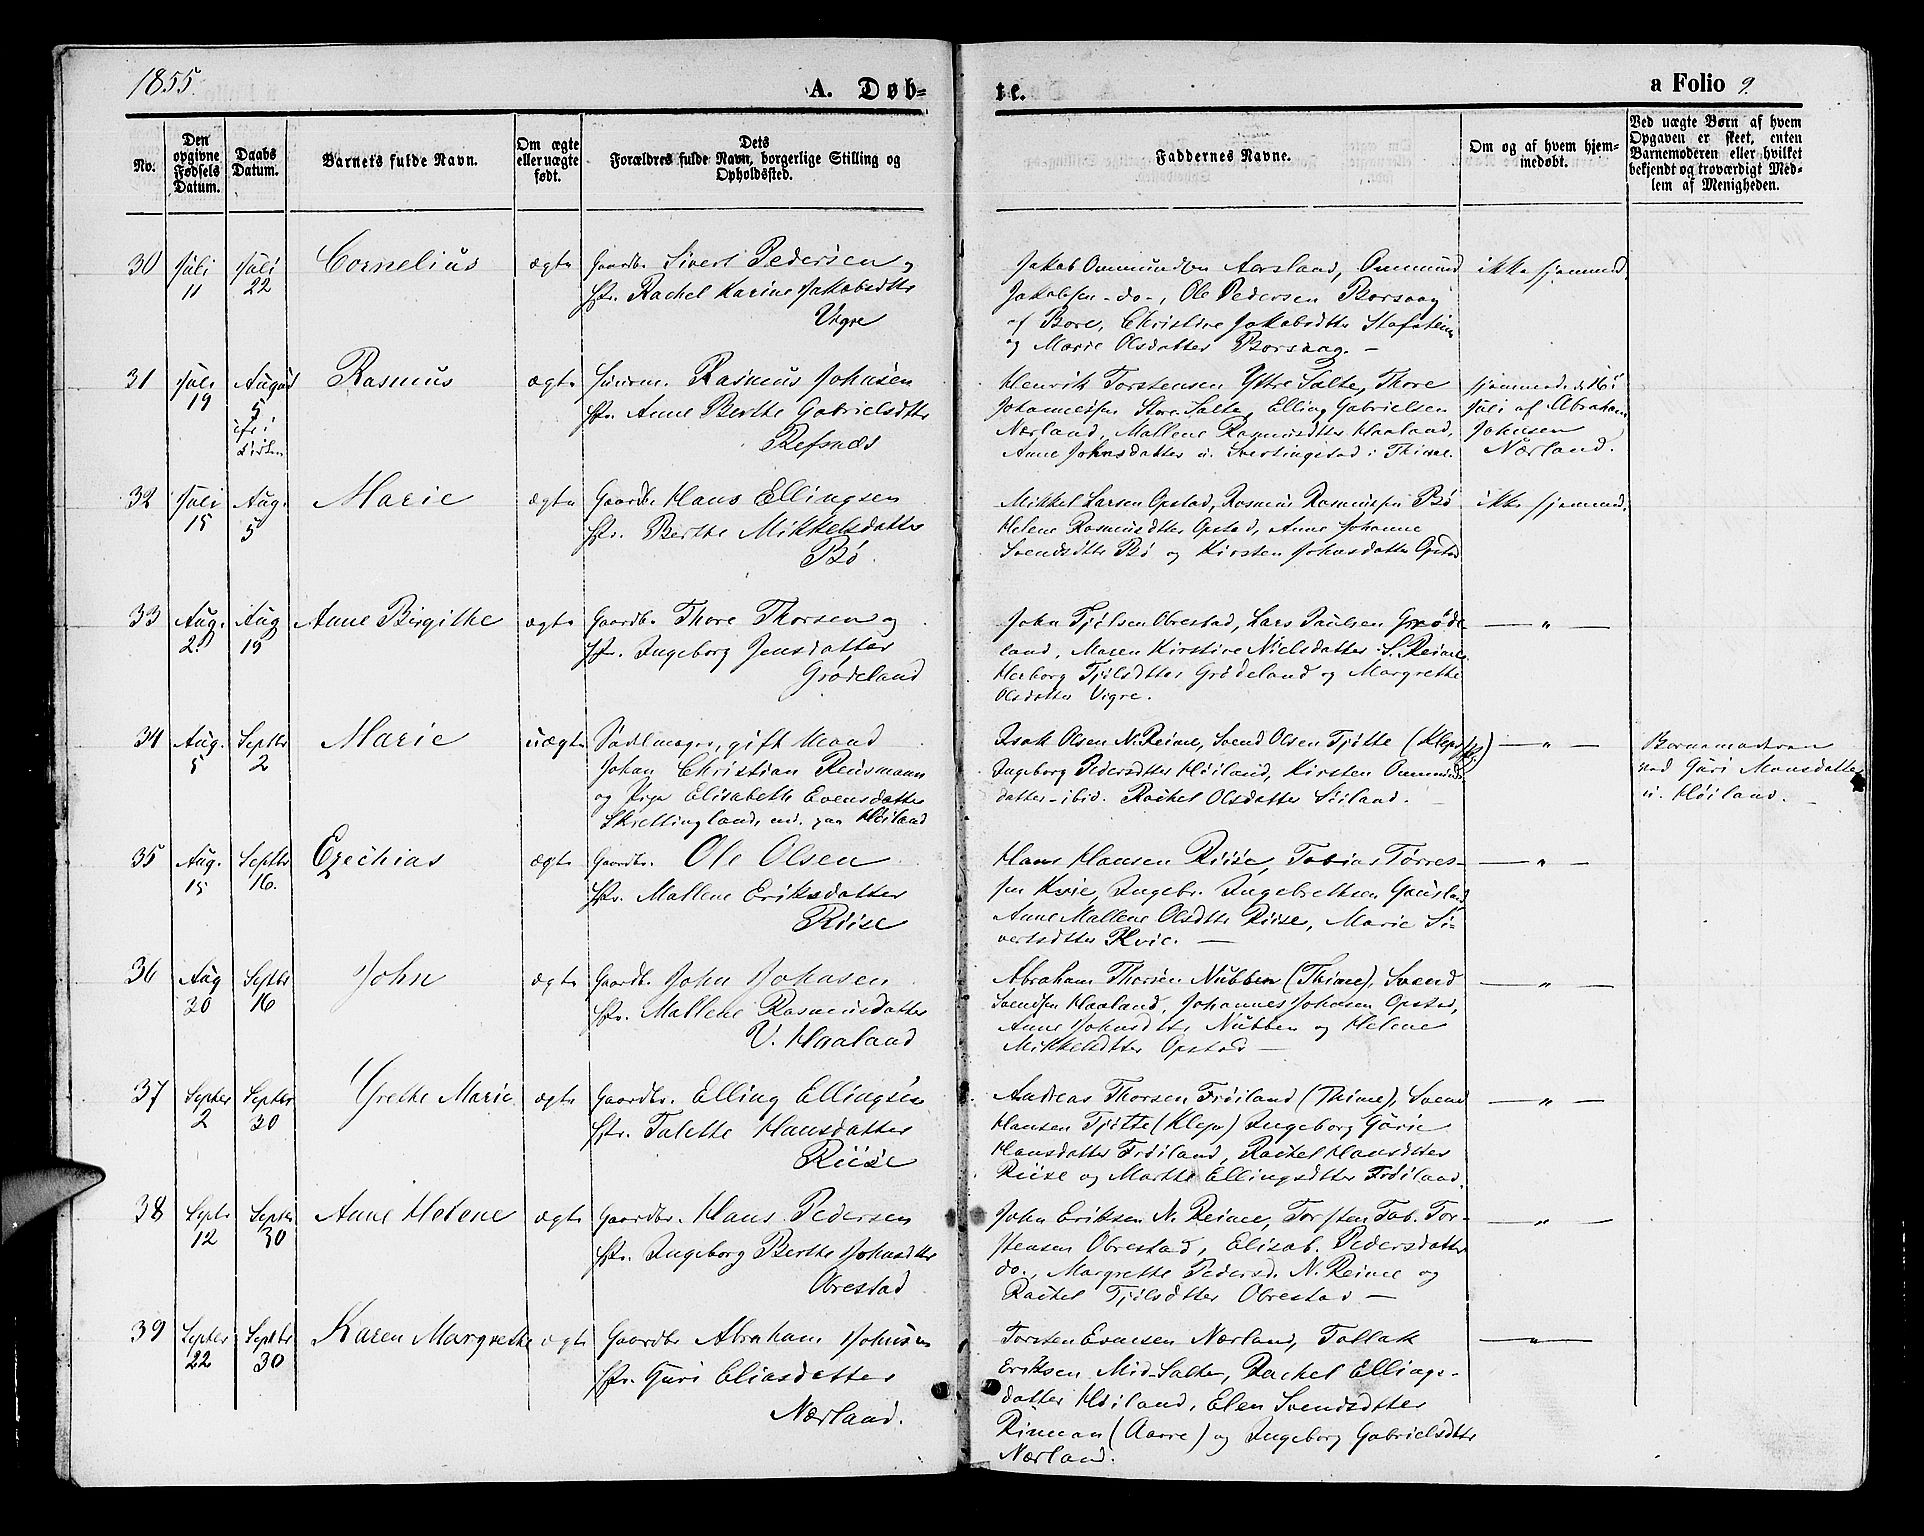 1855.
A. Døb-
te.
a Folio 9.
No.
Den opgivne Fødsels Datum.
Daabs Datum.
Barnets fulde Navn.
Om ægte eller uægte født.
Dets
Forældres fulde Navn, borgerlige Stilling og
Opholdssted.
Faddernes Navne.
Om og af hvem hjem-
medøbt.
Ved uægte Børn af hvem
Opgaven er skeet, enten
Barnemoderen eller hvilket
bekjendt og troværdigt Med-
lem af Menigheden.
30 Juli 11 Juli 22 Cornelius ægte Gaardbr. Sivert Pedersen og
Rachel Karine Jakobsdtter
Vigre
Jakob Ommundsen Aarsland, Ommund
Jakobsen -do-, Ole Pedersen Borsaag
af Bore, Christine Jakobsdtter
og Marie Olsdatter Borsaag. —
ikke hjemmed.
31 Juli 19 August 5 Rasmus ægte Rasmus Johnsen
Anne Berthe Gabrielsdtter
Refsnæs
Henrik Torstensen Yttre Salte, Thore
Johannessen Store Salte, Elling Gabrielsen
Nærland, Mallene Rasmusdtter Haaland,
Anne Johnsdatter Svertingstad i Thime.
Juli af Abraham
Johnsen
Nærland.
32 Juli 15 Aug. 5 Marie ægte Gaardbr. Hans Ellingsen
Berthe Mikkelsdatter
Bø.
Mikkel Larsen Opstad, Rasmus Rasmussen Bø
Helene Rasmusdtter Opstad, Anne Johanne
Svendsdtter Bø og Kirsten Johnsdatter Opstad
ikke hjemmed.
33 Aug. 2 Aug 19 Anne Birgithe ægte Gaardbr. Thore Thorsen og
Ingeborg Jensdatter
Grødeland
John Tjølsen Obrestad, Lars Paulsen Grøde-
land, Maren Kirstine Nielsdatter S. Reime
Herborg Tjølsdtter Grødeland og Margrethe
Olsdatter Vigre.
— " —
34 Aug. 5 Septbr 2 Marie uægte Sadelmager, gift Mand
Johan Christian Reusmann
og Pige Elisabeth Evensdatter
Skrettingland, paa Høiland
Isak Olsen N. Reime, Svend Olsen Tjøtte (Klep)
Ingeborg Pedersdtter Høiland, Kirsten Ommunds-
datter ibid. Rachel Olsdatter Siiland.
— " —
Barnemoderen
ved Guri Monsdatter
Høiland.
35 Aug. 15 Septbr 16. Ezechias ægte Gaardbr. Ole Olsen
Mallene Eriksdatter
Riise
Hans Hansen Riise, Tobias Tørres-
sen Kvie, Ingebr. Ingebrethsen Gauslad
Anne Mallene Olsdtter Riise, Marie Si-
vertsdtter Kvie. —
— " —
36 Aug 20 Septbr 16 John ægte Gaardbr. John Johnsen
Mallene Rasmusdatter
V. Haaland
Abraham Thorsen Nubben (Thime), Svend
Svendsen Haaland, Johannes Johnsen Opstad,
Anne Johnsdtter Nubben og Helene
Mikkelsdtter Opstad —
— " —
37 Septbr 2 Septbr 30 Grethe Marie ægte Gaardbr. Elling Ellingsen
Talette Hansdatter
Riise
Andreas Thorsen Frøiland (Thime), Svend
Hansen Tjøtte (Klep) Ingeborg Gurie
Hansdatter Frøiland, Rachel Hansdtter
Riise og Marthe Ellingsdtter Frøiland.
— " —
38 Septb. 12 Septbr 30 Anne Helene ægte Gaardbr. Hans Pedersen
Ingeborg Berthe Johnsdtter
Obrestad
John Eriksen N. Reime, Torsten Tob. Tor-
stensen Obrestad, Elisab. Pedersdatter
do., Margrethe Pedersd. N. Reime og
Rachel Tjølsdtter Obrestad —
— " —
39 Septbr 22 Septbr 30 Karen Margrethe ægte Gaardbr Abraham Johnsen
Guri Eliasdatter
Nærland.
Torsten Evensen Nærland, Tollak
Eriksen Mid-Salte, Rachel Ellings-
datter Høiland, Elen Svendsdtter
Rinman (Aarre) og Ingeborg Gabrielsdtter
Nærland.
— " —